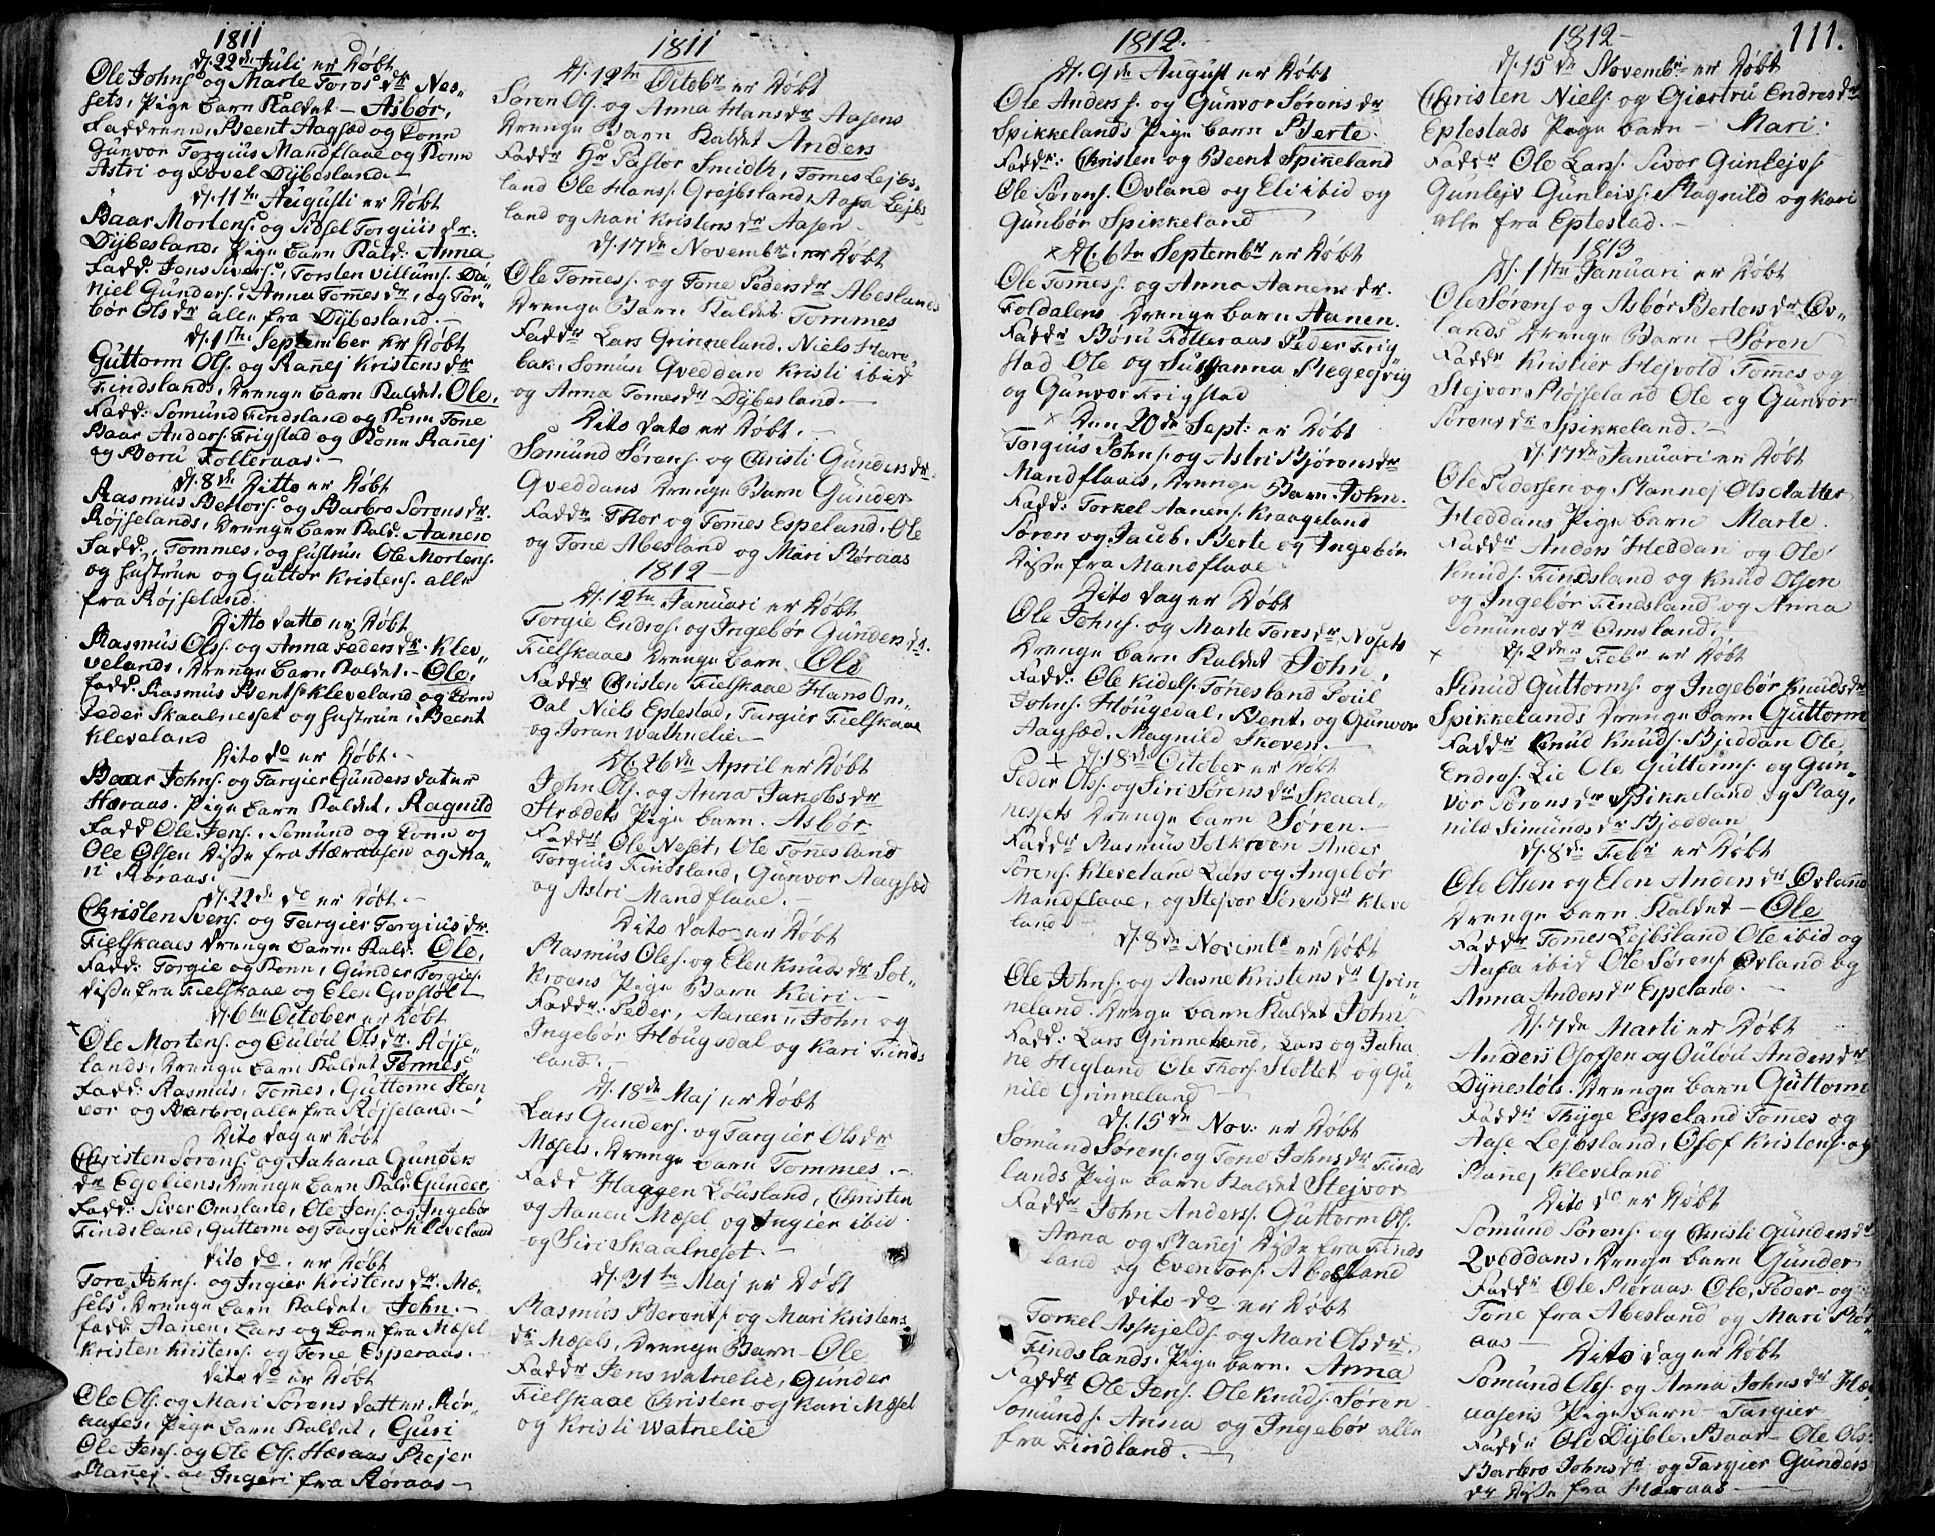 1811
d. 22de Juli er Døbt
Ole Johns. og Marte Toros dr Nes„
sets, Pige barn Kaldet – Asbør,
Faddrene, Beent Aagsæd og Konn
Gunvor Torgius Mandflaae og Konn
Astri og Lovel Dÿbesland. –
d. 11te Augusti er Døbt
Baar Mortens. og Sidsel Torgius dr.
Dÿbeslands Pige barn Kald. Anna
Fadd. Jens Sivers., Torsten Villums. Da„
niel Gunders., Anna Tomes dr, og Tor„
bør Ols dr alle fra Dÿbesland. –
d. 1ste September er Døbt
Guttorm Ols. og Ranej Kristens dr
Findslands, Drenge barn Kaldet. Ole,
Fadd: Somund Findsland og Konn Tone
Baar Anders. Frigstad og Konn Ranej
og Boru Folleraas. –
d. 8de Ditto er Døbt
Rasmus Bertors. og Barbro Sorens dr.
Røjselands, Drenge barn Kald. Aanen
Fadd., Tommes, og hustrun Ole Mortens.
og hustrun og Guttor Kristens. alle
fra Røjseland.
Ditto datto er Døbt
Rasmus Ols. og Anna Peders dr. Klev„
velands, Drenge barn Kaldet. – Ole,
fadd. Rasmus Bents. Kleveland og Konn
Peder Skaalnesset og hustrun, Beent
Kleveland
Dito do er Døbt. –
Baar Johns. og Targier Gunders datter
Høraas. Pige barn Kaldet, Ragnild
Fadd Ole Jens., Somund og Konn og
Ole Olsen Disse fra Høraasen og Ma„
ri Røraas. –
d. 22de do er Døbt. –
Christen Svens. og Targier Torgius dr.
Fielskaaes Drenge barn Kald. Ole,
Fadd: Torgie og Konn, Gunder Torgies.
disse fra Fielskaae og Elen Grostølt
d. 6te October er Døbt
Ole Mortens. og Oulou Ols dr. Røjse„
lands, Drenge barn Kaldet Tommes,
Fadd: Rasmus, Tomes, Guttorm Sten
vor og Barbro, alle fra Røjseland. –
Dito dag er Døbt
Christen Sorens. og Johana Gunders
dr Egeliens, Drenge barn Kald. Gunder,
Fadd: Siver Omsland, Ole Jens. og Ingebør
Findsland, Guttorm og Targier Kleveland
Dito do. er Døbt
Tore Johns. og Ingier Kristens dr. Mæ„
sels, Drenge barn Kaldet, John. –
fadd. Aanen, Lars og Konn fra Mæsel
Kristen Kristens. og Tone Esperaas. –
Dito do er Døbt
Ole Ols. og Mari Sorens datter Rør„
aases, Pige barn Kaldet, Guri
Ole Jens. og Ole Ols. Høraas Rejer
Ranej og Ingeri fra Røraas –
1811
d. 12te Octobr er Døbt
Søren Ols. og Anna Hans dr Aasens
Drenge Barn Kaldet Anders
Faddr Hr Pastor Smidth, Tomes Lejbs„
land Ole Hans. Grejbsland, Aasa Lejbs
land og Mari Kristens dr Aasen –
d. 17de Novembr. er Døbt
Ole Tomes. og Tone Peders dr Abeslands
Drenge Barn Kaldet Tommes
Faddr Lars Grinneland, Niels Hare„
bak, Somun Qveddan Kristi ibid
og Anna Tomes dr Dÿbesland. –
Dito dato er Døbt. –
Somund Sørens. og Christi Gunders dr.
Qveddans Drenge Barn Gunder
Faddr Thor og Tomes Espeland, Ole
og Tone Abesland og Mari Røraas
1812
d. 12te Januari er Døbt
Torgie Endres. og Ingebør Gunders dr.
Fielskaaes Drenge barn Ole
Faddr Christen Fielskaae Hans Om„
dal Niels Eplestad, Targier Fielskaae
og Joran Wathnelie –
d. 26de April er Døbt
John Ols. og Anna Jakobs dr
Strædets Pige barn. Asbør
Faddr Ole Neset, Ole Tonnesland
Torgius Findsland, Gunvor Aagsæd
og Astri Mandflaae. –
Dito dato er Døbt
Rasmus Oles. og Elen Knuds dr Sol„
kroens Pige Barn Kari. –
Faddr: Peder, Aanen, John og
Ingebør Hougsdal og Kari Finds
land. –
d. 18de Maj er Døbt
Lars Gunders. og Targier Ols dr
Mæsels, Drenge barn Tommes. –
Fadd Haagen Lousland, Christen
og Aanen Mæsel, og Ingier ibid
og Siri Skaalneset. –
d. 31te Maj er Døbt
Rasmus Berents. og Mari Kristens
dr Mæsels, Drenge Barn – Ole
Faddr Jens Watnelie, Gunder
Fielskaae Christen og Kari Mæsel
og Kristi Watnelie
1812.
d. 9de August er Døbt
Ole Anders. og Gunvor Sørens dr
Spikkelands Pige barn Berte.
Faddr: Christen og Beent Spikeland
Ole Sørens. Ovland og Eli ibid og
Gunbør Spikkeland
× d. 6te Septembr er Døbt
Ole Tomes. og Anna Aanens dr.
Foldalens Drenge barn Aanen.
Faddr Boru Folleraas Peder Frig„
stad Ole og Susanna Regevig
og Gunvor Frigstad
× Den 20de Sept: er Døbt
Torgius Johns. og Astri Bjørens dr
Mandflaaes, Drenge Barn John.
Fadd: Torkel Aanens. Kraageland
Søren og Jacub, Berte og Ingebør
Disse fra Mandflaae
Dito dag er Døbt
Ole Johns. og Marte Tores dr Nesets
Drenge barn Kaldet John,
Fadd: Ole Kidels. Tonesland Poul
Johns. Hougedal, Bent, og Gunvor
Aagsæd. Magnild Skoven. –
× d. 18de October er Døbt
Peder Ols. og Siri Sorens dr Skaal„
nessets Drenge barn Soren. –
Faddr Rasmus Solkroen Ander
Sorens. Kleveland Lars og Ingebør
Mandflaae, og Stejvor Sorens dr Kleve
land –
d. 8de Novembr er Døbt
Ole Johns. og Aasne Kristens dr Grin„
neland. Drenge barn Kaldet John
Fadd: Lars Grinneland, Lars og Joha
ne Heyland Ole Thors. Slottet og Gu„
nild Grinneland –
d. 15de Nov: er Døbt
Somund Sorens. og Tone Johns dr Finds
lands Pige barn Kaldet Stejvor
Faddr John Anders. Guttorm Ols.
Anna og Ranej Disse fra Finds
land og Even Tors. Abesland
Dito do er Døbt
Torkel Asskjelds. og Mari Ols dr.
Findslands, Pige barn. Anna
Faddr Ole Jens. Ole Knuds. Soren
Somunds. Anna og Ingebør alle
fra Findland. –
1812 –
111.
d. 15de Novembr. er Døbt
Christen Niels. og Giertru Endres dr
Eplestads Pige barn – Mari.
Faddr Ole Lars. Sivor Gunlejvs.
Gunlejv Gunleivs. Magnild og Kari
alle fra Eplestad. –
1813
d. 1ste Januari er Døbt
Ole Sørens. og Asbør Bertors dr Ov„
lands Drenge Barn – Søren
Faddr Kristier Hejvold Tomes og
Stejvor Røjseland Ole og Gunvor
Sorens dr Spikkeland. –
d. 17de Januari er Døbt
Ole Pedersen og Rannej Olsdatter
Heddans Pige barn Marte.
Faddr Anders Heddan og Ole
Knuds. Findsland og Knud Olsen
og Ingebør Findsland og Anna
Somunds dr Omsland.
× d. 2den Febr er Døbt
Knud Guttorms. og Ingebør Knuds dr
Spikkelands Drenge barn Guttorm
Faddr Knud Knuds. Bjeddan Ole
Endres. Lie Ole Guttorms. og Gun„
vor Sorens dr Spikkeland og Rag„
nild Simunds dr Bjæddan
d. 8de Febr er Døbt
Ole Olsen og Elen Anders dr Ovland
Drenge barn Kaldet – Ole
Faddr Tomes Lejbsland Ole ibid og
Aasa ibid Ole Sørens. Ovland og
Anna Anders dr Espeland. –
d. 7de Marti er Døbt
Anders Osofsen og Oulou Anders dr
Dÿnestøls. Drenge barn Guttorm
Faddr Thÿge Espeland Tomes og
Aase Lejbsland, Osof Kristens. og
Ranej Kleveland
Dito do er Døbt
Somund Sorens. og Christi Gunders dr
Qveddans, Drenge barn Gunder
Faddr Ole Røraas. Ole, Peder – og
Tone fra Abesland og Mari Rør„
aas –
Dito dag er Døbt
Somund Ols. og Anna Johns dr Hør
aasens Pige barn – Targier
Faddr Ole Dÿble, Baar Ole Ols.
Barbro Johns dr og Targier Gunders
dr Disse fra Høraas –